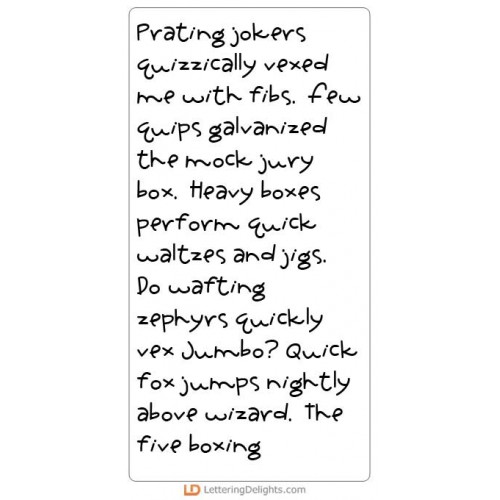 Prating jokers
quizzically vexed
me with fibs. Few
quips galvanized
the mock jury
box. Heavy boxes
perform quick
waltzes and jigs.
Do wafting
zephyrs quickly
vex Jumbo? Quick
fox jumps nightly
above wizard. The
five boxing
LD LetteringDelights.com